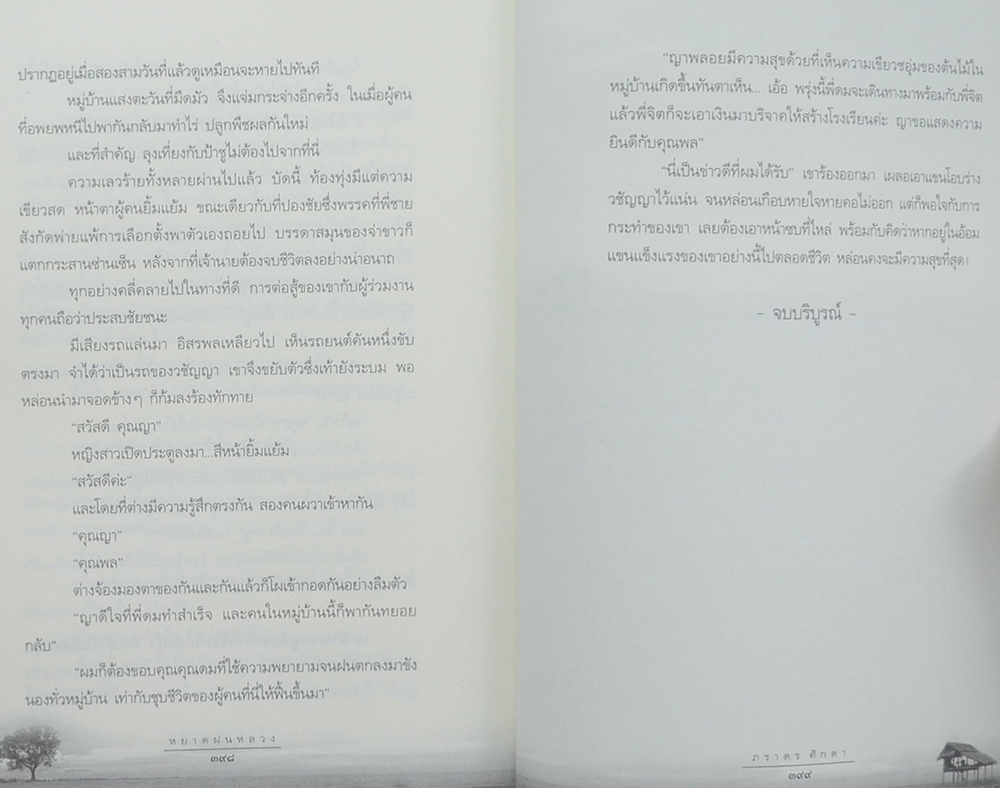 ปรากฏอยู่เมื่อสองสามวันที่แล้วดูเหมือนจะหายไปทันที
หมู่บ้านแสงตะวันที่มืดมัว จึงแจ่มกระจ่างอีกครั้ง ในเมื่อผู้คน
ที่อพยพหนีไปพากันกลับมาทำไร่ ปลูกพืชผลกันใหม่
และที่สำคัญ ลุงเที่ยงกับป้าชูไม่ต้องไปจากที่นี่
ความเลวร้ายทั้งหลายผ่านไปแล้ว บัดนี้ ท้องทุ่งมีแต่ความ
เขียวสด หน้าตาผู้คนยิ้มแย้ม ขณะเดียวกับที่ปองชัยซึ่งพรรคที่พี่ชาย
สังกัดพ่ายแพ้การเลือกตั้งพาตัวเองถอยไป บรรดาสมุนของจ่าขาวก็
แตกกระสานซ่านเซ็น หลังจากที่เจ้านายต้องจบชีวิตลงอย่างน่าอนาถ
ทุกอย่างคลี่คลายไปในทางที่ดี การต่อสู้ของเขากับผู้ร่วมงาน
ทุกคนถือว่าประสบชัยชนะ
มีเสียงรถแล่นมา อิสรพลเหลียวไป เห็นรถยนต์คันหนึ่งขับ
ตรงมา จำได้ว่าเป็นรถของวชัญญา เขาจึงขยับตัวซึ่งเท้ายังระบม พอ
หล่อนนำมาจอดข้างๆ ก็ก้มลงร้องทักทาย
“สวัสดี คุณญา”
หญิงสาวเปิดประตูลงมา...สีหน้ายิ้มแย้ม
“สวัสดีค่ะ”
และโดยที่ต่างมีความรู้สึกตรงกัน สองคนผวาเข้าหากัน
“คุณญา”
“คุณพล”
ต่างจ้องมองตาของกันและกันแล้วก็โผเข้ากอดกันอย่างลืมตัว
“ญาดีใจที่พี่ดมทำสำเร็จ และคนในหมู่บ้านนี้ก็พากันทยอย
กลับ”
“ผมก็ต้องขอบคุณคุณดมที่ใช้ความพยายามจนฝนตกลงมาขัง
นองทั่วหมู่บ้าน เท่ากับชุบชีวิตของผู้คนที่นี่ให้ฟื้นขึ้นมา”
หยาดฝนหลวง
๓๙๘
“ญาพลอยมีความสุขด้วยที่เห็นความเขียวชอุ่มของต้นไม้ใน
หมู่บ้านเกิดขึ้นทันตาเห็น... เอ้อ พรุ่งนี้พี่ดมจะเดินทางมาพร้อมกับพี่จิต
แล้วพี่จิตก็จะเอาเงินมาบริจาคให้สร้างโรงเรียนค่ะ ญาขอแสดงความ
ยินดีกับคุณพล”
“นี่เป็นข่าวดีที่ผมได้รับ” เขาร้องออกมา เผลอเอาแขนโอบร่าง
วชัญญาไว้แน่น จนหล่อนเกือบหายใจหายคอไม่ออก แต่ก็พอใจกับการ
กระทำของเขา เลยต้องเอาหน้าซบที่ไหล่ พร้อมกับคิดว่าหากอยู่ในอ้อม
แขนแข็งแรงของเขาอย่างนี้ไปตลอดชีวิต หล่อนคงจะมีความสุขที่สุด!
- จบบริบูรณ์ -
ภราดร ศักดา
๓๙๙